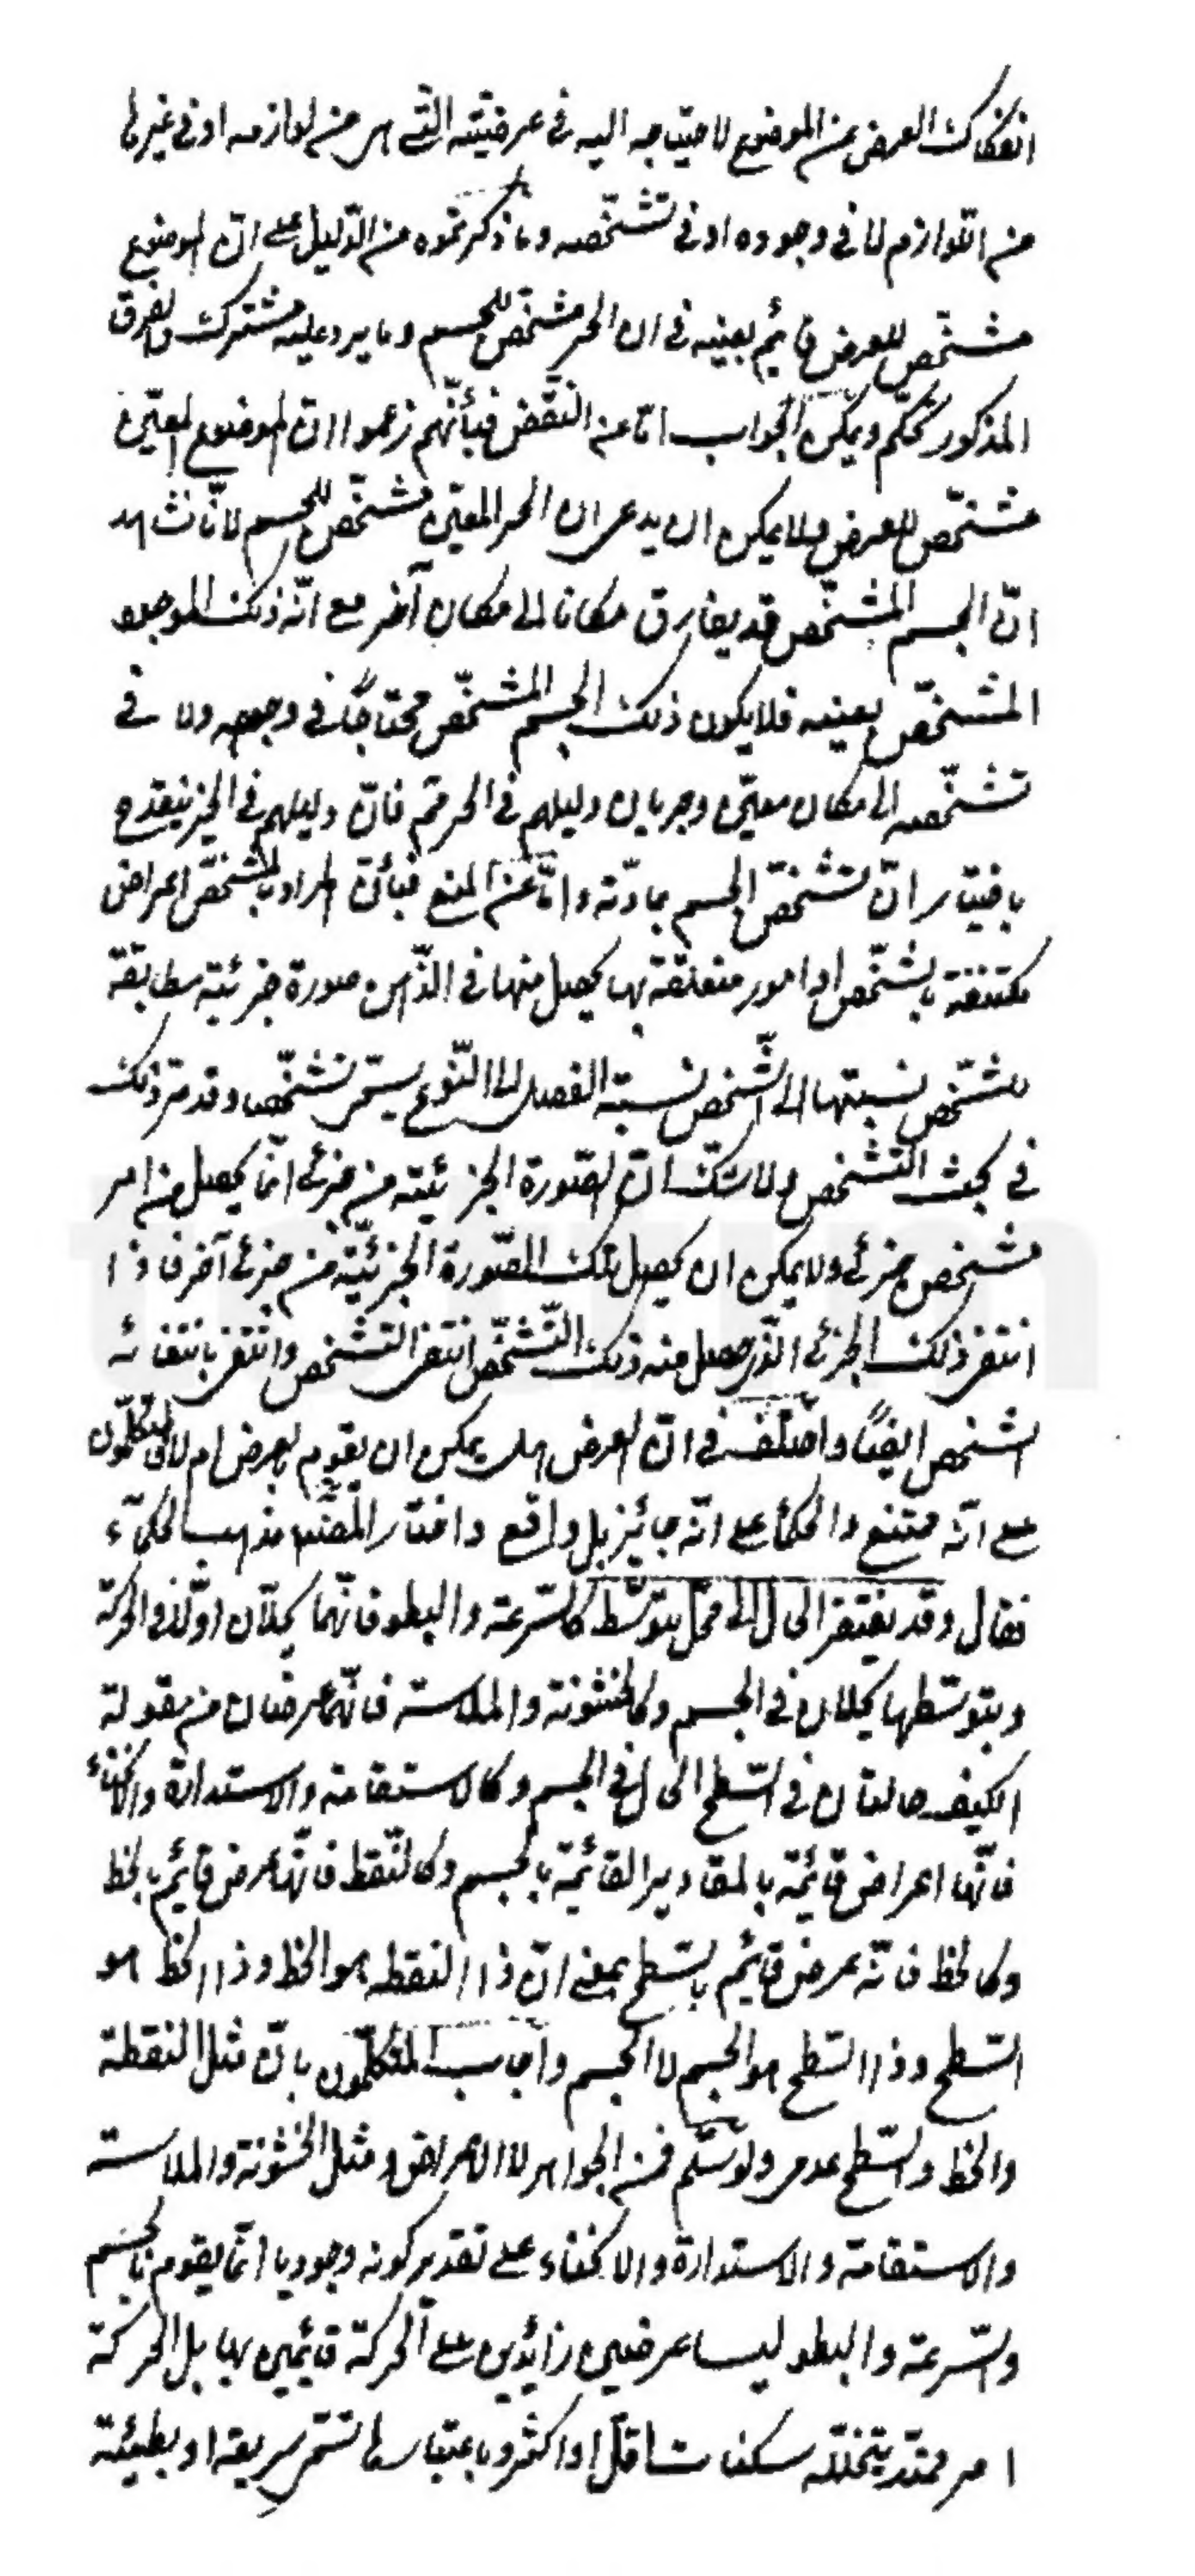 انفكاك العرض عن الموضوع لاحتياجه اليه فى عرضيته التى هى من لوازمه او فى غيرها
من اللوازم لا فى وجوده او فى تشخّصه وما ذكرتموه من الدّليل على انّ الموضوع
مشخّص للعرض قائم بعينه فى ان الحيز مشخّص للجسم وما يرد عليه مشترك والفرق
المذكور تحكّم ويمكن الجواب امّا عن النّقض فبأنّهم زعموا ان الموضوع المعيّن
مشخّص للعرض ولا يمكن ان يدعى ان الحيز المعيّن مشخّص للجسم لانّا نشاهد
انّ الجسم المشخّص قد يفارق مكانا الى مكان آخر مع انّه ذلك الموجود
المشخّص بعينه فلا يكون ذلك الجسم المشخّص محتاجًا فى وجوده ولا فى
تشخّصه الى مكان معيّن وجريان دليلهم فى الحيز ثم فانّ دليلهم فى الحيز ينقدح
باختيار انّ تشخّص الجسم بمادّته وامّا عن المنع فبأنّ المراد بالمشخّص اعراض
مكتنفة بالشّخص او امور متعلقة بها يحصل منها فى الذّهن صورة جزئية مطابقة
للشّخص نسبتها الى الشّخص نسبة الفصل الى النّوع يسمّى تشخّصا وقد مرّ ذلك
فى بحث التّشخص ولا شكّ انّ الصّورة الجزئية من جزئى انّما يحصل من امر
مشخص جزئى ولا يمكن ان يحصل تلك الصّورة الجزئيّة من جزئى آخر فاذا
انتفى ذلك الجزئى الّذى حصل منه ذلك التّشخّص انتفى التشخص وانتفى بانتفائه
الشخص ايضًا واختلف فى انّ العرض هل يمكن ان يقوم بالعرض ام لا فالمتكلّمون
على انّه ممتنع والحكماء على انّه جائز بل واقع واختار المصنّف مذهب الحكمآء
فقال وقد يفتقر الحال الى محلّ بتوسّط كالسّرعة والبطوء فانّهما يحلّان اوّلا فى الحركة
وبتوسّطها يحلان فى الجسم وكالخشونة والملاسة فانّهما عرضان من مقولة
الكيف حالتان فى السّطح الحال فى الجسم وكالاستقامة والاستدارة والانحناء
فانّها اعراض قائمة بالمقادير القائمة بالجسم وكالنّقط فانّها عرض قائم بالخط
وكالخط فانّه عرض قائم بالسّطح بمعنى انّ ذا النقطة هو الخط وذا الخط هو
السّطح وذا السّطح هو الجسم لا الجسم واجاب المتكلّمون بانّ مثل النقطة
والخط والسّطح عدمى ولو سلّم فمن الجواهر لا الاعراض ومثل الخشونة والملاسة
والاستقامة والاستدارة والانحناء على تقدير كونه وجوديا انّما يقوم بالجسم
والسّرعة والبطوء ليسا عرضين زائدين على الحركة قائمين بها بل الحركة
امر ممتدّ يتخلّله سكنات اقلّ او اكثر وباعتبارها تسمّى سريعة او بطيئة